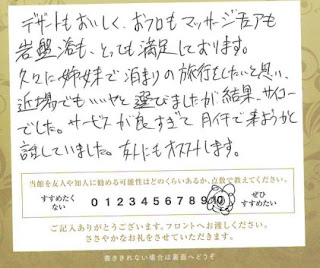 デザートもおいしく、お風呂もマッサージチェアも
岩盤浴も、とっても満足しております。
久々に姉妹で泊まりの旅行をしたいと思い、
近場でもいいやと選びましたが結果、サイコー
でした。サービスが良すぎて月イチで来ようかと
話していました。友人にもオススメします。
当館を友人や知人に勧める可能性はどのくらいあるか、点数で教えてください。
すすめたくない 0 1 2 3 4 5 6 7 8 9 10 ぜひすすめたい
ご記入ありがとうございます。フロントへお渡しください。
ささやかなお礼をさせていただきます。
書ききれない場合は裏面へどうぞ